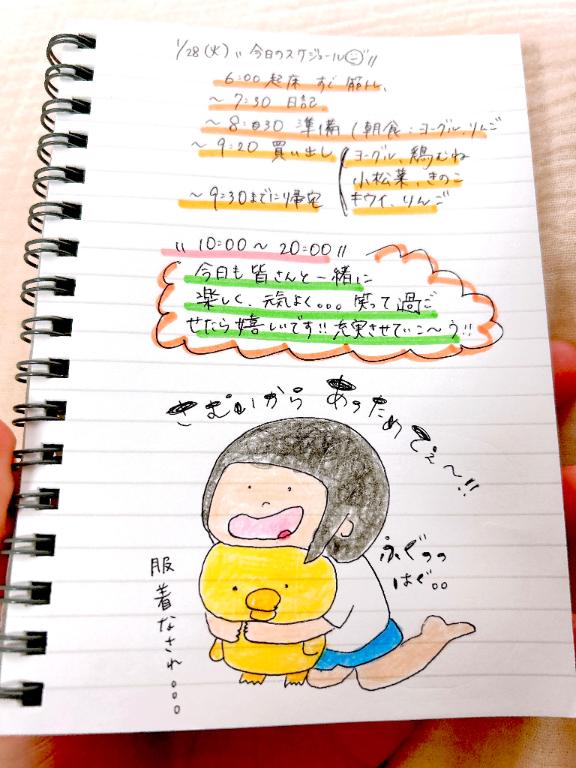 1/28(火) 〝今日のスケジュール〟!!
6:00 起床 すぐ筋トレ、
～7:30 日記
～8:30 準備 (朝食:ヨーグル、りんご
～9:20 買い出し (ヨーグル、鶏むね
小松菜、きのこ
キウイ、りんご
～9:30までに帰宅
〝10:00～20:00〟!!
今日も皆さんと一緒に
楽しく、元気よく。。。笑って過ご
せたら嬉しいです!!充実させていこ～う!!
さむいから あっためてぇ～!!
ふぐっっ
はぐ。。
服着なされ。。。